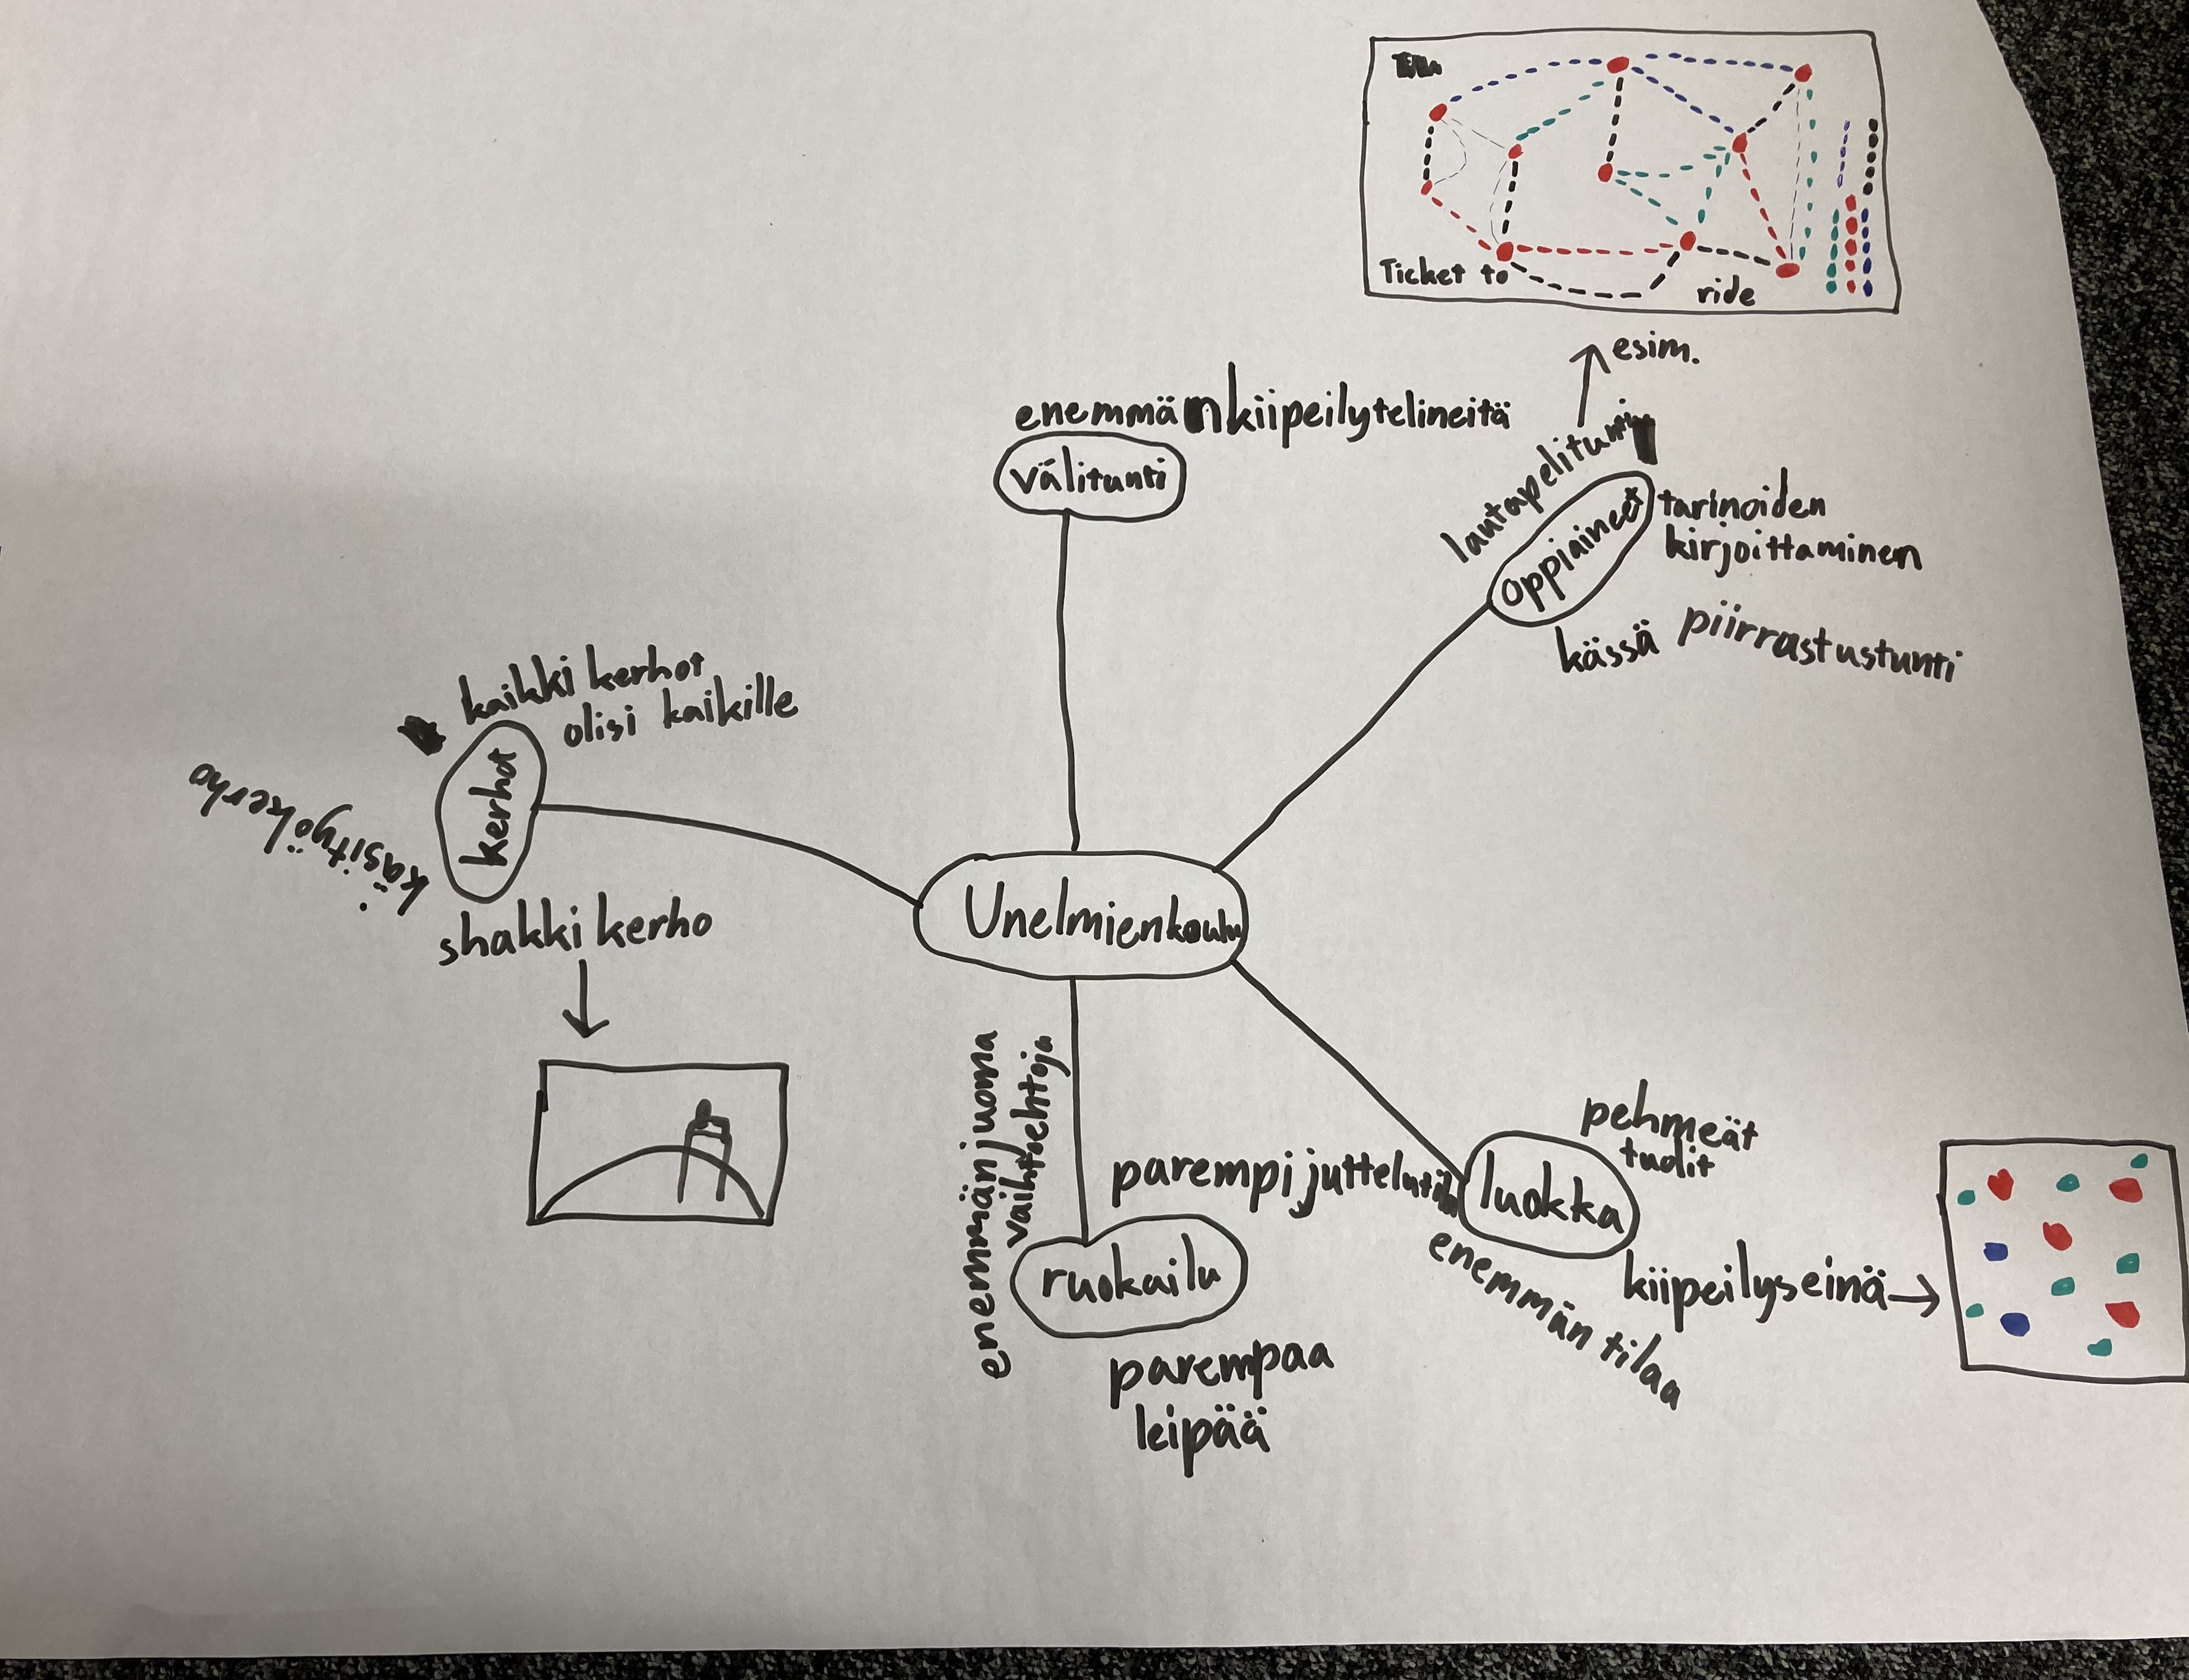 Ticket to
ride
esim.
enemmän kiipeilytelineitä
välitunti
lautapelitunti
oppiaineet
tarinoiden
kirjoittaminen
kässä piirrastustunti
kaikki kerhot
olisi kaikille
kerhot
käsityökerho
shakki kerho
Unelmienkoulu
enemmän juoma
vaihtoehtoja
ruokailu
parempaa
leipää
parempi juttelutila
luokka
pehmeät
tuolit
kiipeilyseinä
enemmän tilaa